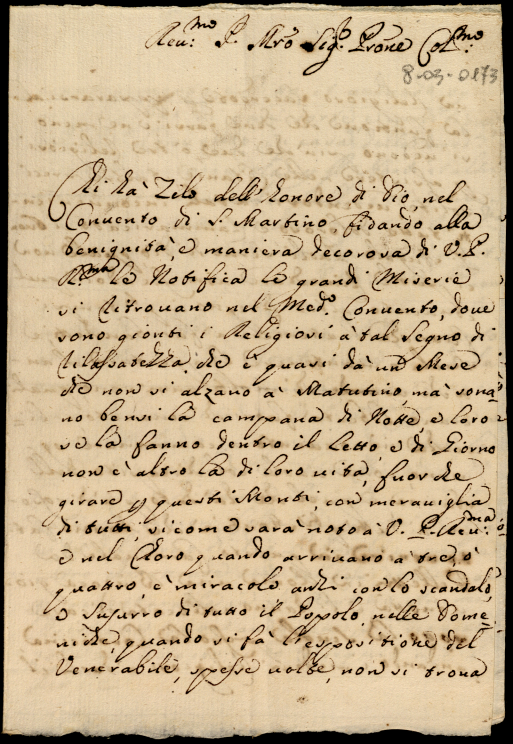 Reu:mo P. Mro Sig.r Prone Col:mo
8-03-0173
Chi hà Zilo dell'honore di Dio, nel
Convento di S. Martino, fidando alla
benignità, e maniera decorosa di V. P.
R.ma le Notifica le grandi Miserie
si ritrouano nel Med.o Conuento, doue
sono gionti i Religiosi à tal Segno di
rilassatezza che è quasi dà un Mese
che non si alzano à Matutino, mà sona=
no bensi la campana di Notte, e loro
se la fanno dentro il letto, e di Giorno
non è altro la di loro uita, fuor che
girare p questi Monti, con merauiglia
di tutti, sicome sarà noto à V. P. Reu:ma
e nel Choro quando arriuano à tre, ò
quattro, è miracolo anzi con lo scandalo,
e susurro di tutto il Popolo, nelle Dome=
niche, quando si fà l'espositione del
Venerabile, spesse uolte, non si troua